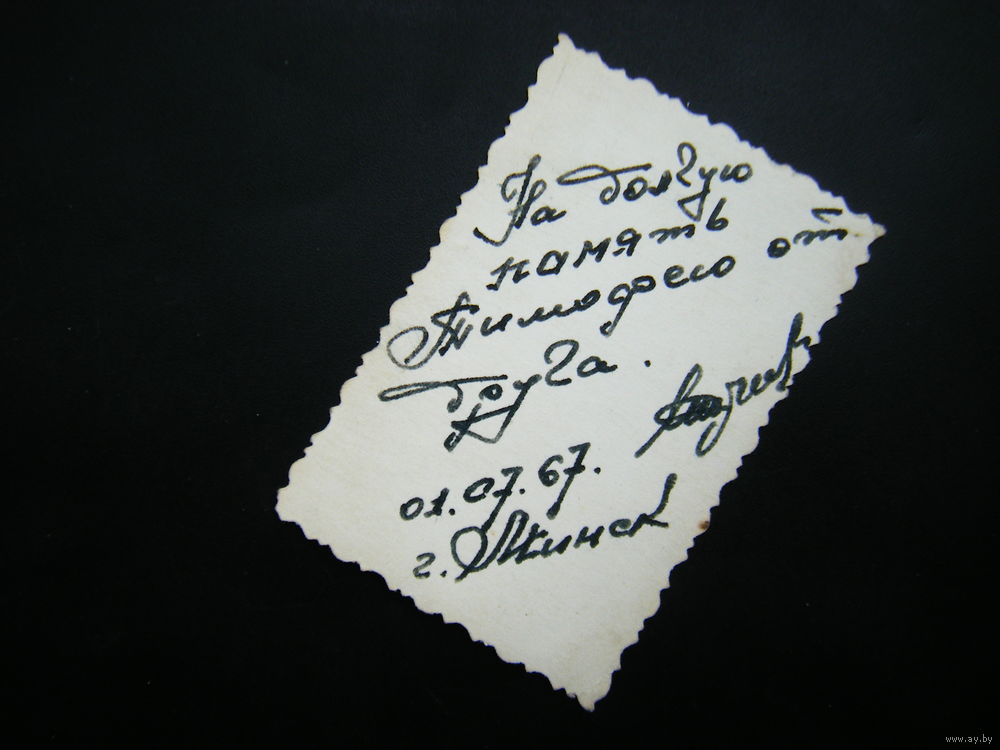 На долгую
память
Тимофею от
друга.
01.07.67.
г. Минск
www.ay.by